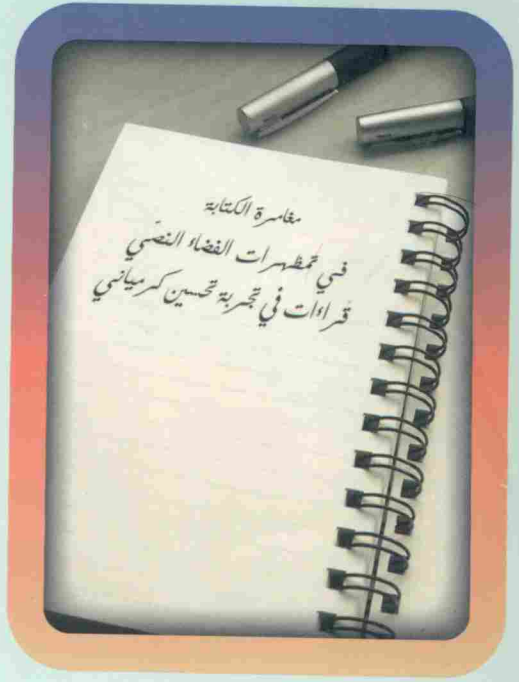 مغامرة الكتابة
في تمظهرات الفضاء النصّي
قراءات في تجربة تحسين كرمياني